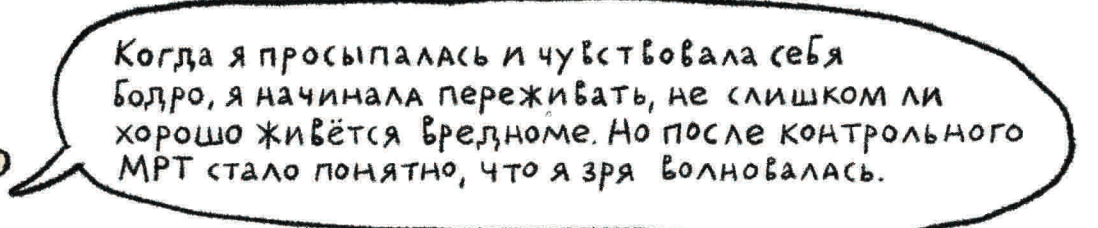 Когда я просыпалась и чувствовала себя
бодро, я начинала переживать, не слишком ли
хорошо живётся вредноме. Но после контрольного
МРТ стало понятно, что я зря волновалась.